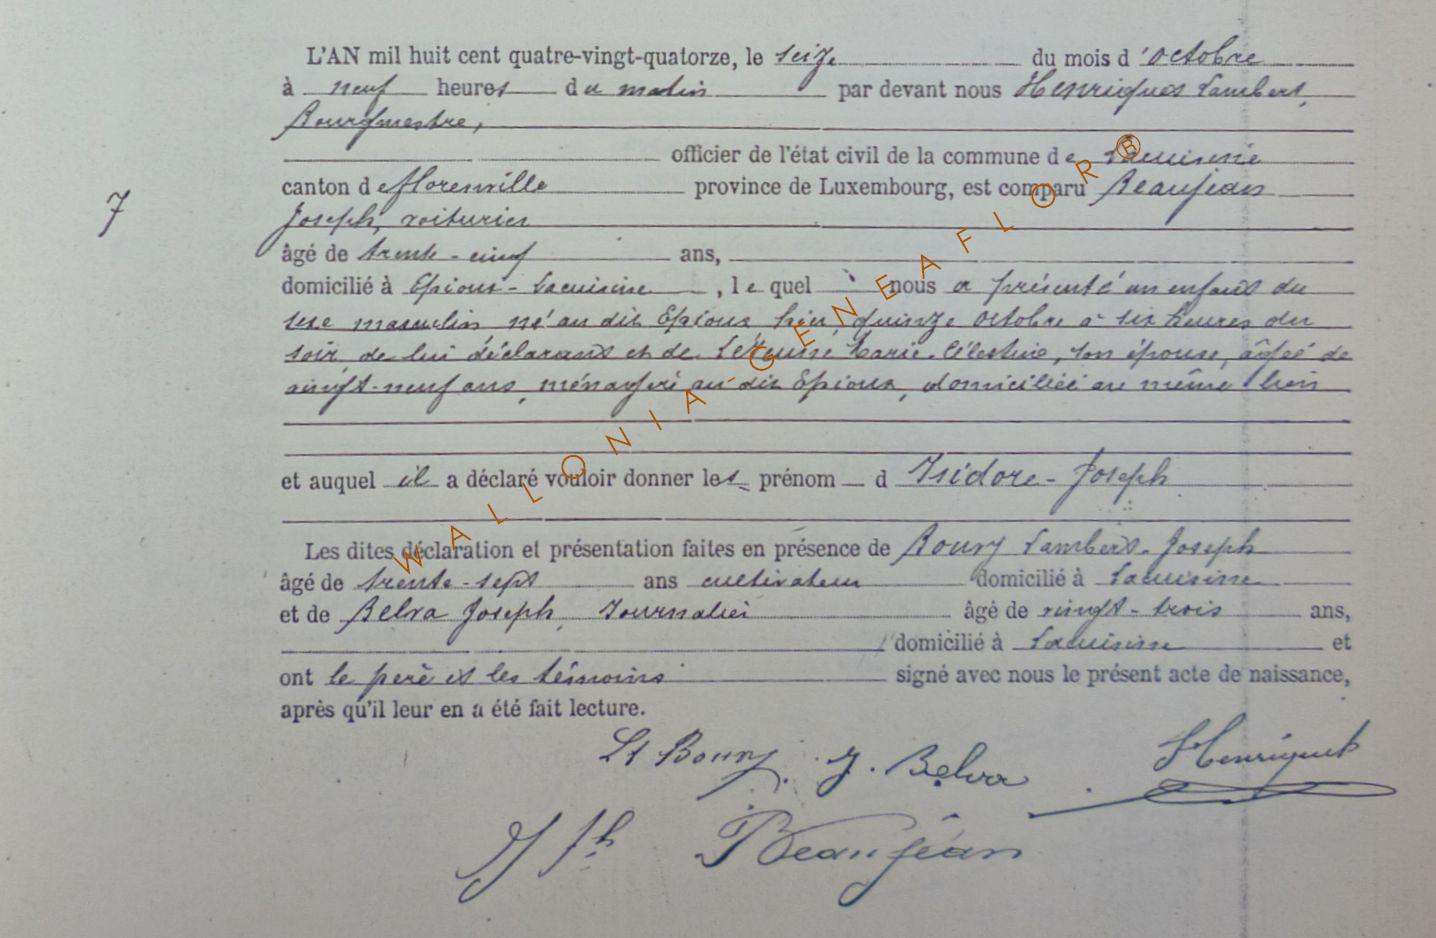 L'AN mil huit cent quatre-vingt-quatorze, le seize du mois d'octobre
à neuf heures du matin par devant nous Henriquet Lambert,
Bourgmestre,
officier de l'état civil de la commune de Lacuisine
canton de Florenville province de Luxembourg, est comparu Beaujean
Joseph, voiturier
âgé de trente-cinq ans,
domicilié à Epioux-Lacuisine, lequel nous a présenté un enfant du
sexe masculin né au dit Epioux, hier, quinze octobre à six heures du
soir, de lui déclarant et de Marie-Célestine, son épouse, âgée de
vingt-neuf ans, ménagère au dit Epioux, domiciliée au même lieu
et auquel il a déclaré vouloir donner les prénom d Isidore-Joseph
Les dites déclaration et présentation faites en présence de Boury Lambert-Joseph
âgé de trente-sept ans cultivateur domicilié à Lacuisine
et de Belva Joseph, Journalier âgé de vingt-trois ans,
domicilié à Lacuisine et
ont le père et les témoins signé avec nous le présent acte de naissance,
après qu'il leur en a été fait lecture.
7
Lt Boury. J. Belva Henriquet
Jph Beaujean
WALLONIA-GENEAFLOR®